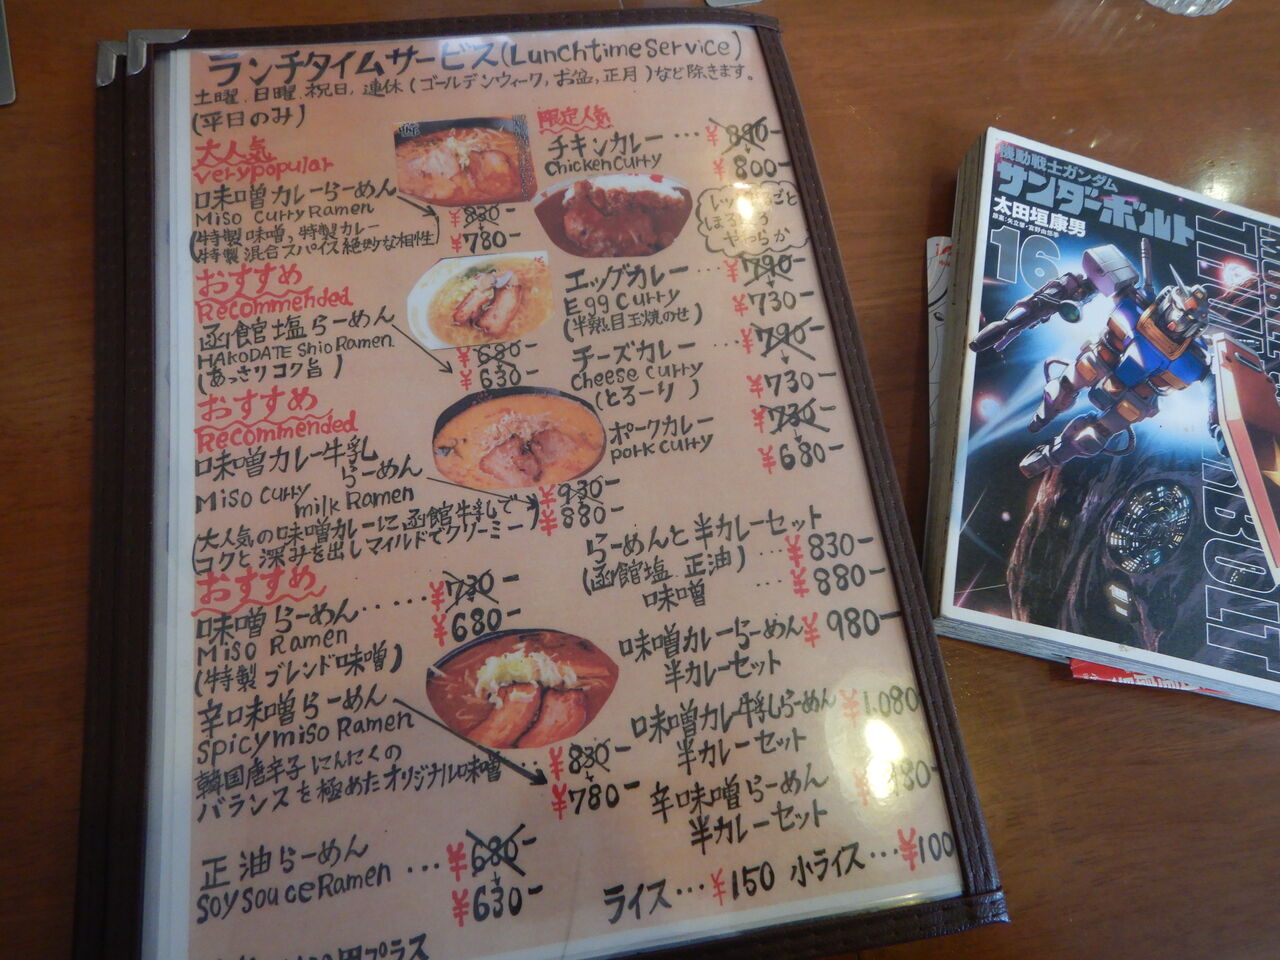 ランチタイムサービス(Lunchtime Service)
土曜、日曜、祝日、連休(ゴールデンウィーク,お盆,正月)など除きます。
(平日のみ)
大人気
very popular
味噌カレーらーめん
Miso Curry Ramen
(特製味噌、特製カレー
特製混合スパイス絶妙な相性)
¥830-
¥780-
おすすめ
Recommended
函館塩らーめん
HAKODATE Shio Ramen
(あっさりコク旨)
¥680-
¥630-
おすすめ
Recommended
味噌カレー牛乳
らーめん
Miso Curry
milk Ramen
¥930-
¥880-
(大人気の味噌カレーに函館牛乳で
コクと深みを出しマイルドでクリーミー)
おすすめ
味噌らーめん……
Miso Ramen
(特製ブレンド味噌)
¥730-
¥680-
辛味噌らーめん
spicy miso Ramen
韓国唐辛子にんにくの
バランスを極めたオリジナル味噌…
¥830-
¥780-
正油らーめん
Soy Souce Ramen …
¥680-
¥630-
円プラス
限定人気
チキンカレー…
Chicken Curry
¥800-
ほろほろ
やわらか
エッグカレー…
Egg Curry
(半熟目玉焼のせ)
¥790-
¥730-
チーズカレー
Cheese Curry
(とろーり)
¥790-
¥730-
ポークカレー
pork curry
¥730-
¥680-
らーめんと半カレーセット
(函館塩、正油)… ¥830-
味噌 … ¥880-
味噌カレーらーめん ¥980-
半カレーセット
味噌カレ牛乳らーめん ¥1.080
半カレーセット
辛味噌らーめん
半カレーセット
ライス… ¥150 小ライス… ¥100
機動戦士ガンダム
サンダーボルト
太田垣康男
原案:矢立肇・富野由悠季
16